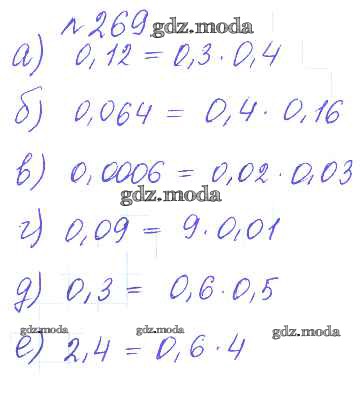 №269 gdz.moda
а) 0,12 = 0,3 · 0,4
б) 0,064 = 0,4 · 0,16
в) 0,0006 = 0,02 · 0,03
gdz.moda
г) 0,09 = 9 · 0,01
д) 0,3 = 0,6 · 0,5
gdz.moda gdz.moda gdz.moda
е) 2,4 = 0,6 · 4